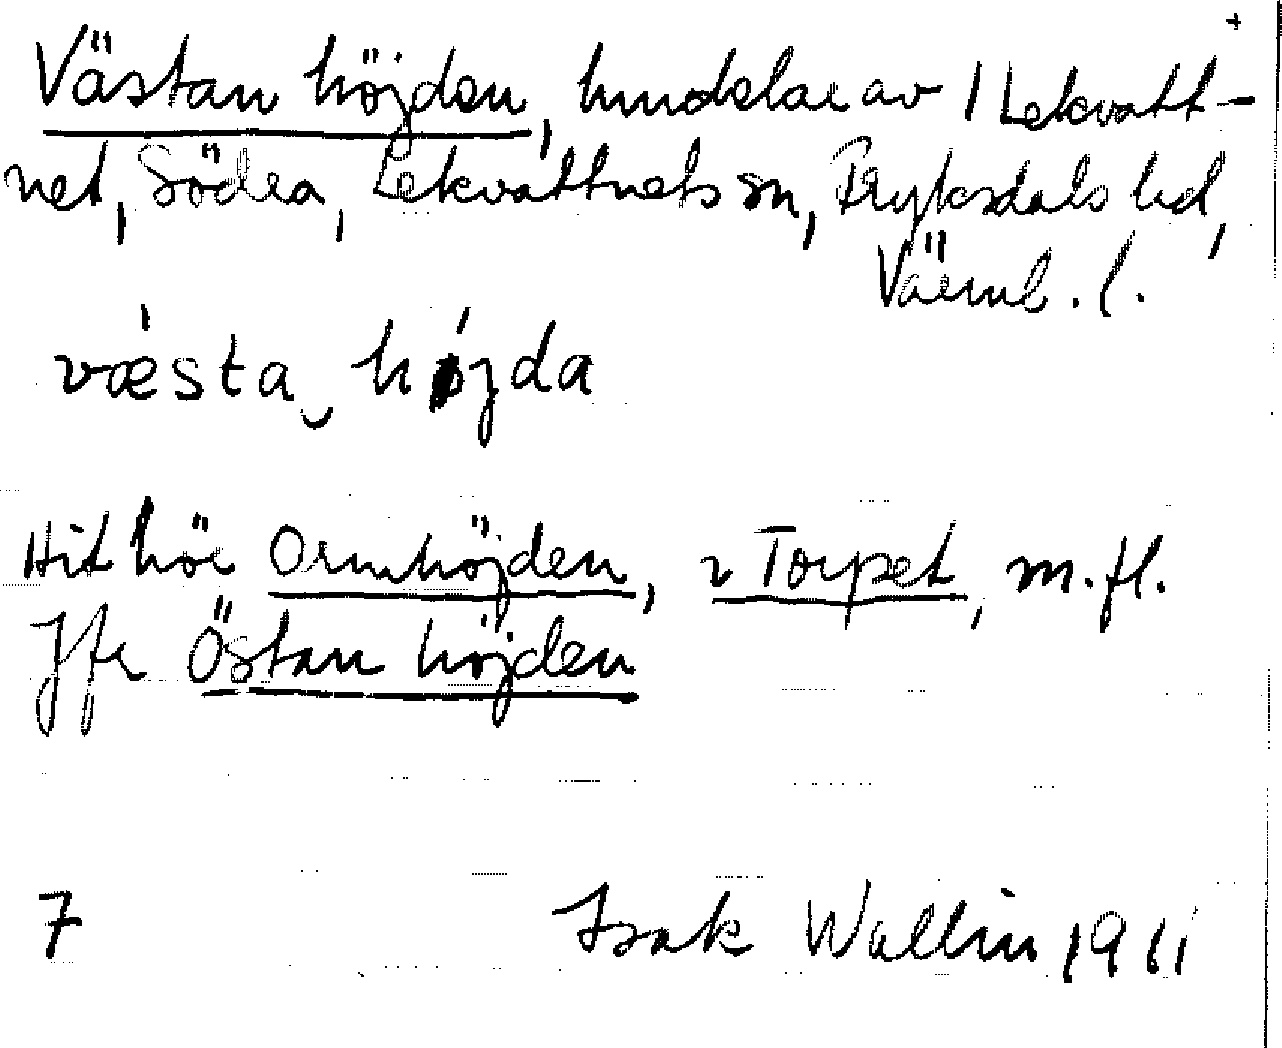 +
Västan höjden, hmdelar av 1 Lekvatt-
net, Södra, Lekvattnets sn, Fryksdals hd,
Värml. l.
væ̀sta‿ højda
Hit hör Ormhöjden, v Torpet, m.fl.
Jfr Östan höjden
7 Isak Wallin 1911